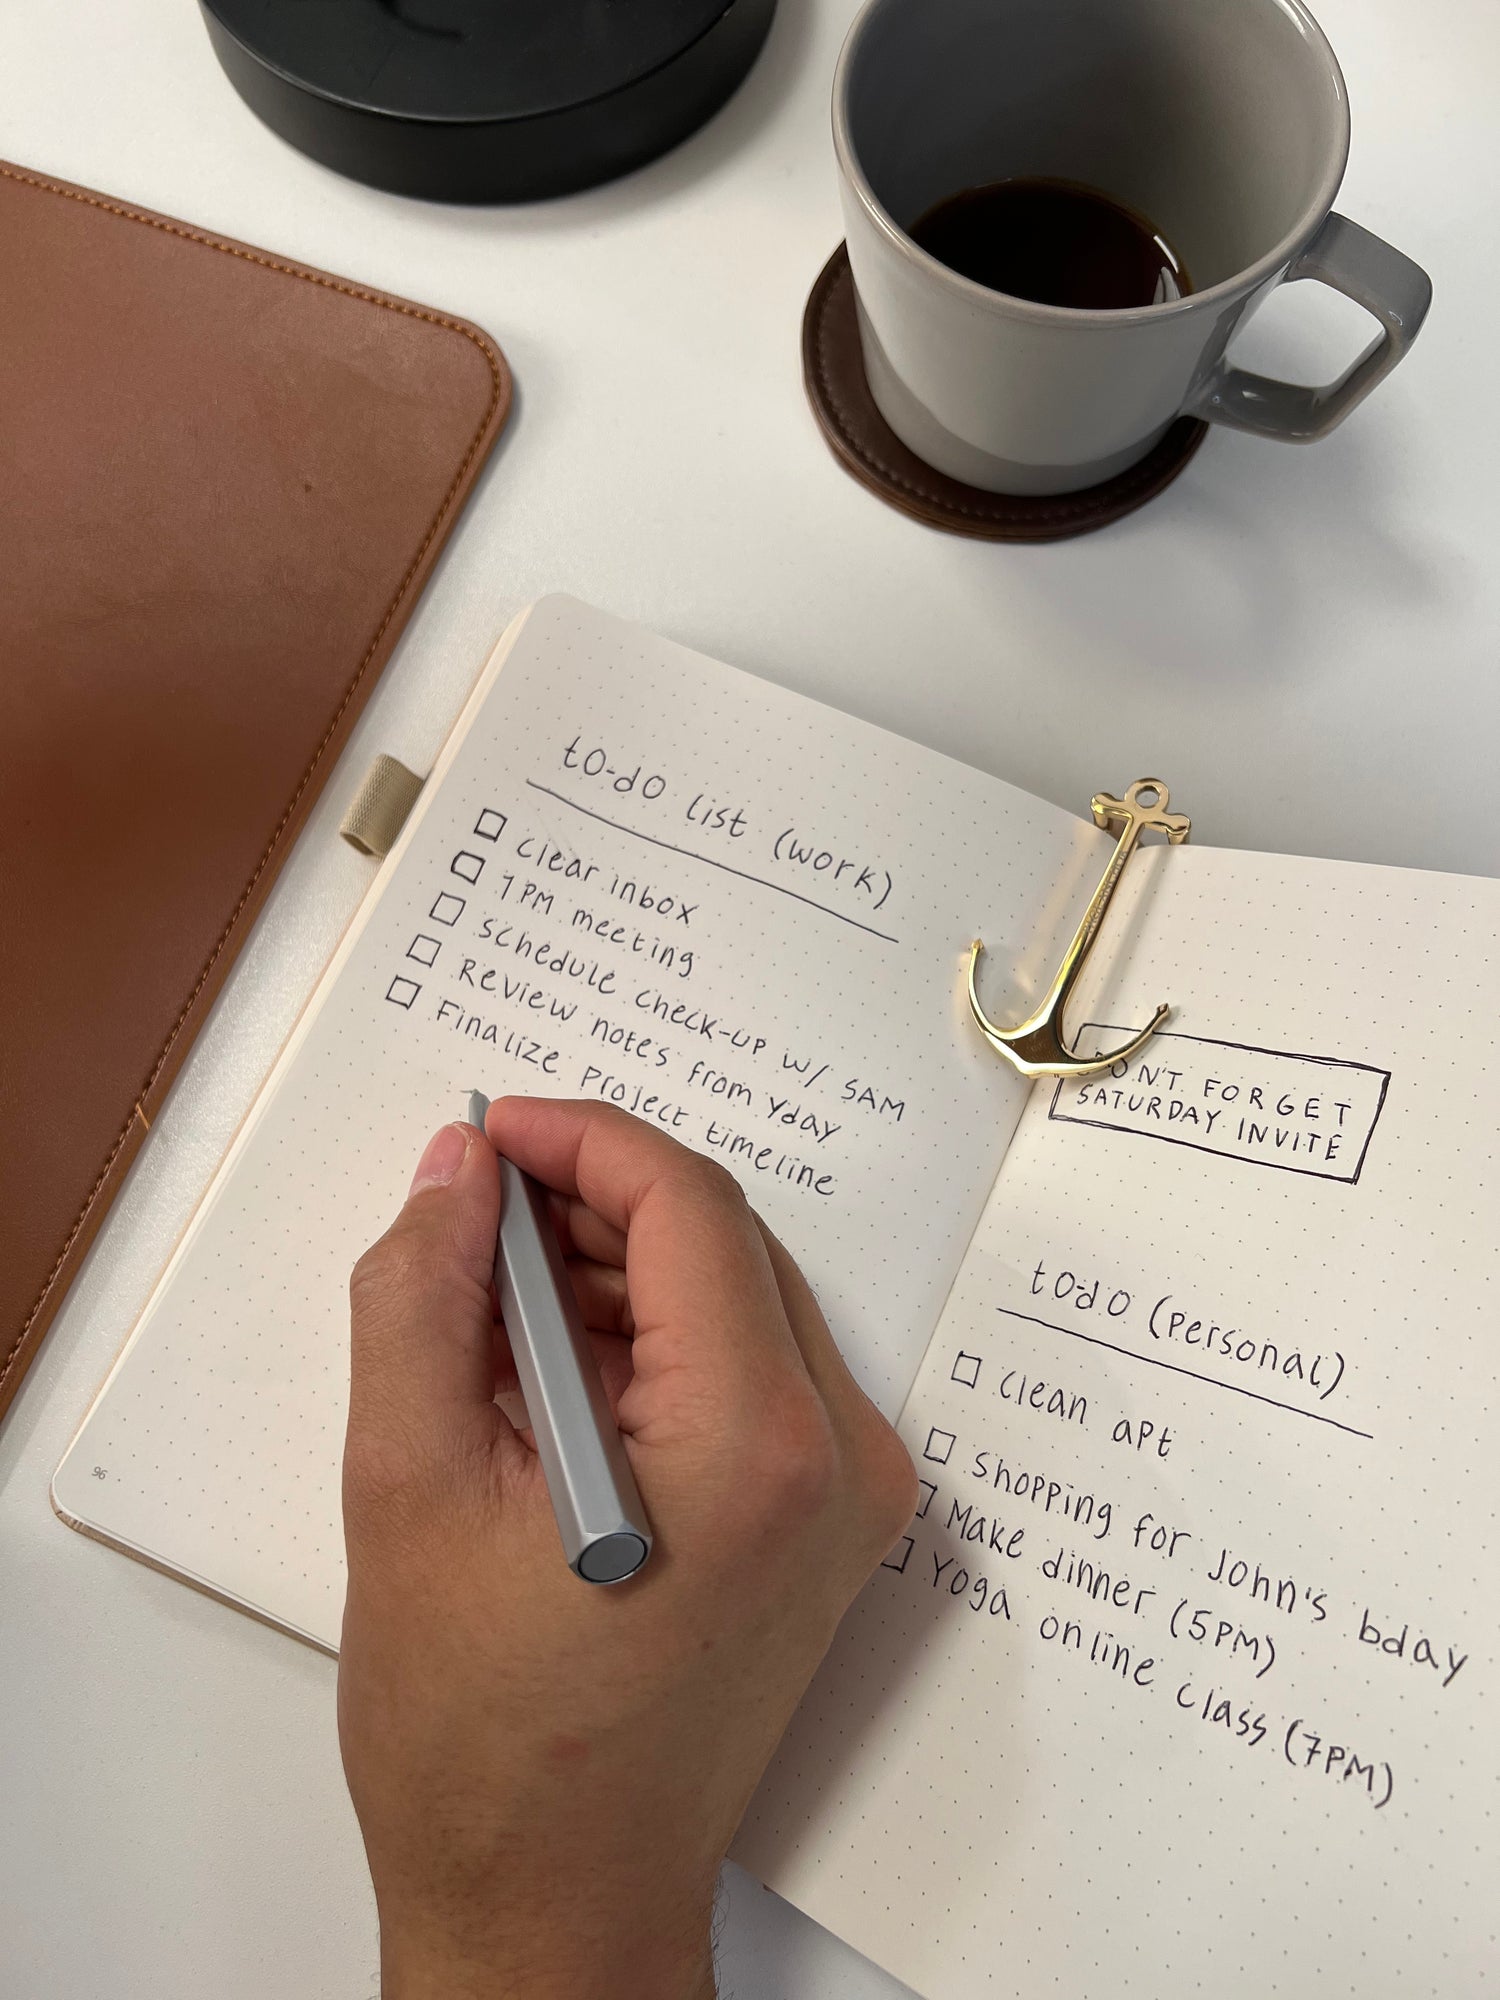 to-do list (work)
clear inbox
1PM meeting
schedule check-up w/ SAM
Review notes from yday
Finalize project timeline
96
DON'T FORGET
SATURDAY INVITE
to-do (personal)
clean apt
shopping for John's bday
Make dinner (5PM)
Yoga online class (7PM)